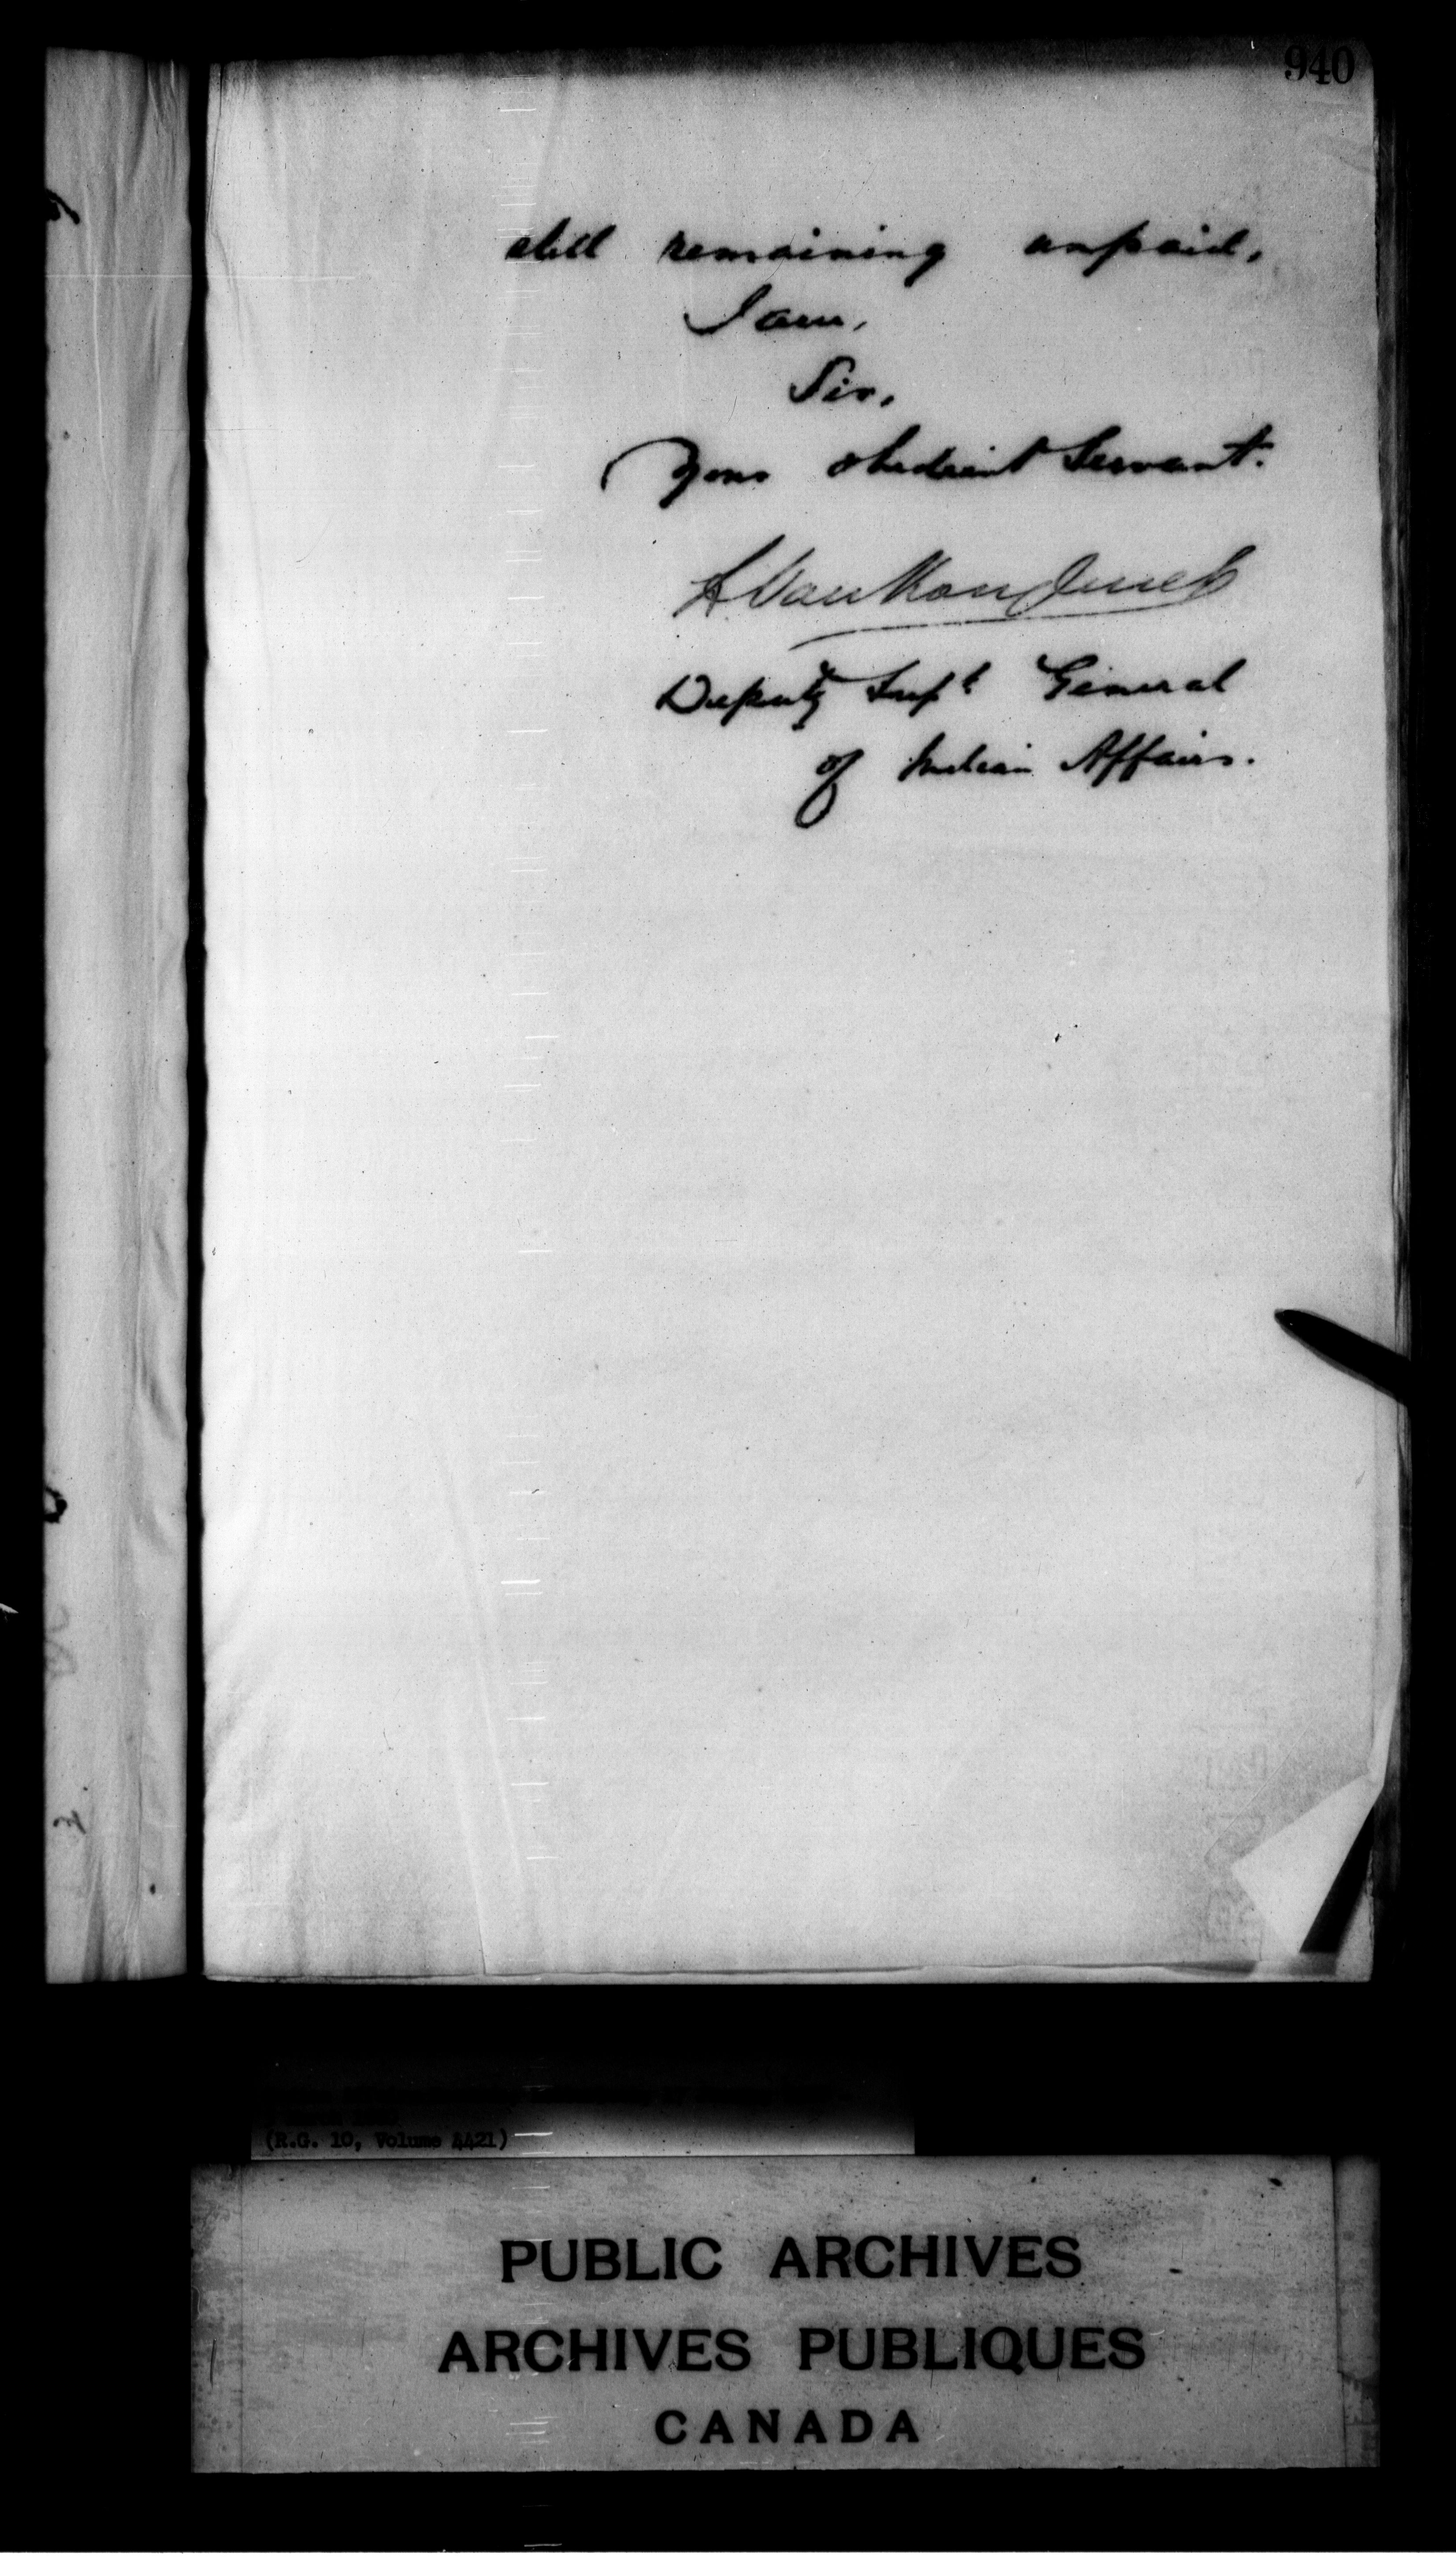 940
still remaining unpaid,
I am,
Sir,
Your obedient Servant.
L Vankoughnet
Deputy Supt General
of Indian Affairs.
(R.G. 10, Volume 4421)
PUBLIC ARCHIVES
ARCHIVES PUBLIQUES
CANADA